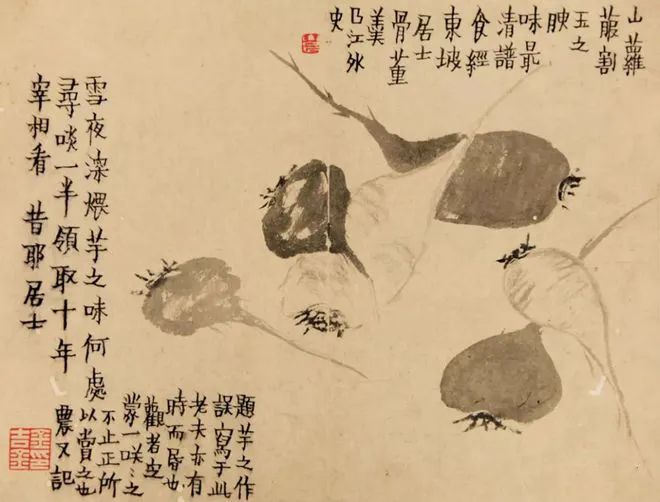 山蘿
菔割
玉之
腴
味最
清譜
食經
東坡
居士
骨董
羹
曲江外
史
雪夜深煨芋之味何處
尋啖一半領取十年
宰相看 昔耶居士
題芋之作
誤寫于此
老夫亦有
時而昏也
觀者
一咲〻之
不止正所
以賞之也
農又記